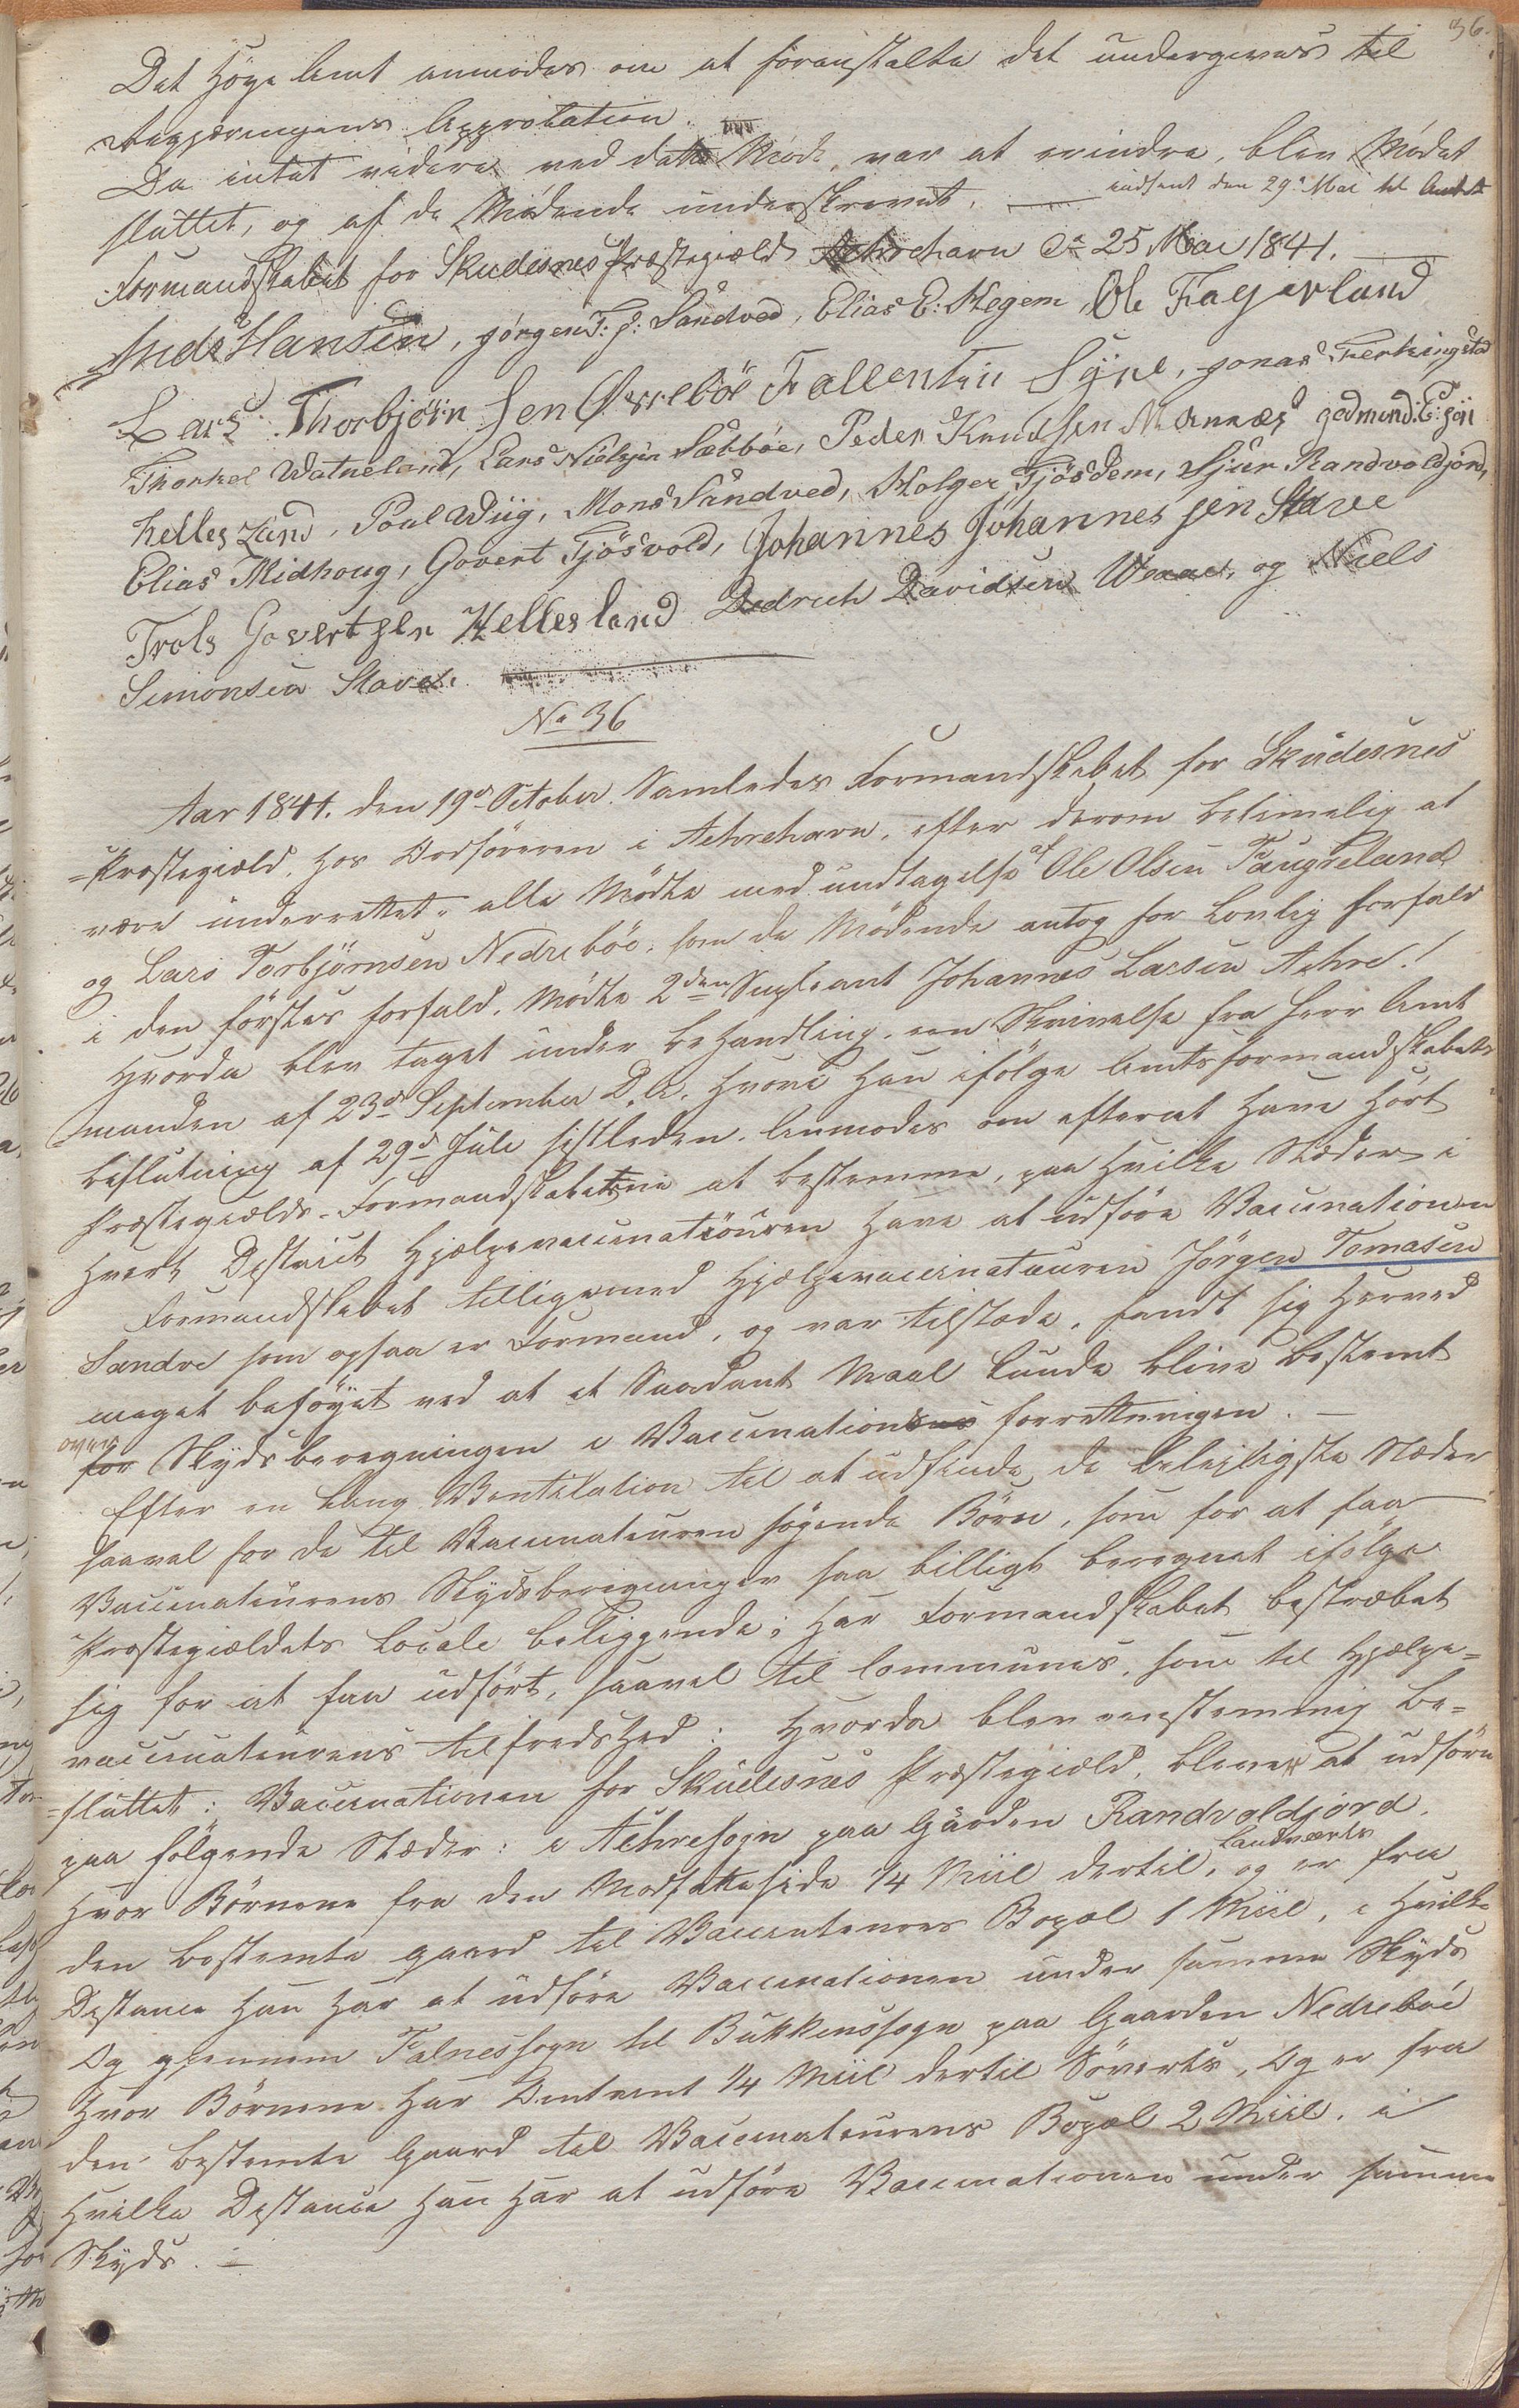 36.
Det Høye Amt anmodes om at foranstalte det undergives til
Regjeringens Approbation.
Da intet videre ved dette Møde, var at erindre, blev Mødet
sluttet, og af de Mødende underskrevet. — indsent den 29de Mai til Amtet
Formandskabet for Skudesnes Præstegjæld Aehrehavn d. 25 Mai 1841. —
Ands Hansen, Jørgen T: S: Sandved, Elias E: Stegem, Ole Fagerland
Lars Thorbjörn Sen Øvreböe Fallentin Syre, Jonas Ferkingstad
Thorkel Watneland, Lars Nielsen Sæbböe, Peder Knudsen Mannæs godmend: E: søn
helles Land, Poul Wiig, Mons Sandved, Holger Tjösdem, Sjur Randvoldjord,
Elias Midhoug, Govert Tjösvold, Johannes Johannes sen Stave
Trols Govertsen Hellesland Dedrich Davidsen Weaae, og Niels
Simonsen Stave.
No 36
Aar 1841. den 19de October. Samledes Formandskabet for Skudesnes
Præstegiæld, hos Ordföreren i Aehrehavn, efter derom betimelig at
være underrettet, alle Mödte med undtagelse af Ole Olsen Faugreland
og Lars Torbjörnsen Nedreböe, som de Mödende antog for Lovlig forfald
i den förstes forfald, Mödte 2den Supleant Johannes Larsen Aehre!
Hvorda blev taget under behandling, een Skrivelse fra Herr Amt
manden af 23de September D. A. hvori han ifölge Amtsformandskabets
beslutning af 29de Juli sistleden. Anmodes om efterat have hört
Præstegiælds-Formandskaberne at bestemme, paa hvilke Stæder i
hvert Destrict Hjælpevaccinatöuren have at udföre Vaccinationen
Formandskabet tilligemed Hjælpevaccinateuren Jörgen Tomasen
Sandve som ogsaa er Formand, og var tilstede, fandt sig herved
meget beföyet ved at et Saadant Maal kunde blive bestemt
over for Skydsberegningen i Vaccinations forretningen. —
Efter en lang Ventilation til at udfinde de beleiligste Stæder
saavel for de til Vaccinateuren sögende Börn, som for at faa
Vaccinateurens Skydsberegninger saa billigt beregnet ifölge
Præstegiældets Locale beliggende; har Formandskabet bestræbet
sig for at faa udfört, saavel til Communes, som til Hjælpe=
vaccinateurens tilfredshed: Hvorda blev eenstemmig be=
=sluttet: Vaccinationen for Skudesnes Præstegiæld, bliver at udföre
paa fölgende Stæder: i Aehresogn paa Gården Randvoldjord,
hvor Börnene fra den Modsatte side 1/4 Miil dertil, Landværts og er fra
den bestemte gaard til Vaccinateurens Bopæl 1 Miil, i hvilke
Distance han har at udföre Vaccinationen under samme Skyds
Og gjennem Falnessogn til Bukkensogn paa Gaarden Nedreböe
hvor Börnene har Omtrent 1/4 Miil dertil Söverts, Og er fra
den bestemte Gaard til Vaccinateurens Bopæl 2 Miil. i
hvilke Distance han har at udföre Vaccinationen under samme
Skyds. —